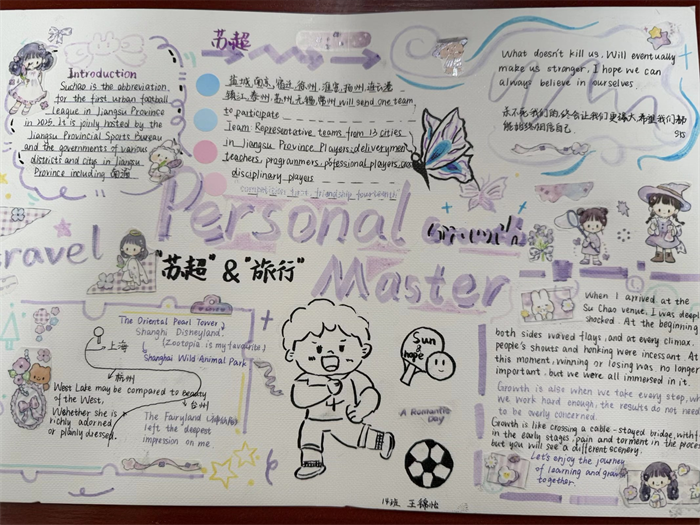 Introduction
Suchao is the abbreviation
for the first urban football
league in Jiangsu Province
in 2025. It is jointly hosted by the
Jiangsu Provincial Sports Bureau
and the governments of various
districts and cities in Jiangsu
Province including 南通
苏超
盐城,南京,宿迁,徐州,淮安,扬州,连云港
镇江,泰州,苏州,无锡,常州,will send one team
to participate
Team Representative teams from 13 cities
in Jiangsu Province Players:deliverymen
teachers,programmers,professional players,
disciplinary players
competition first, friendship fourteenth
What doesn't kill us, Will eventually
make us stronger, I hope we can
always believe in ourselves.
杀不死我们的,终会让我们更强大,希望我们都
能始终相信自己
Personal Growth
Travel
"苏超" & "旅行"
Master
The Oriental Pearl Tower
Shanghai Disneyland.
(Zootopia is my favourite)
Shanghai Wild Animal Park
上海
杭州
台州
West Lake may be compared to Beauty
of the West,
Whehether she is
richly adorned
or planly dressed.
The Fairyland
left the deepest
impression on me
Sun
&
hope
A Romantic
Day
When I arrived at the
Su Chao venue, I was deeply
shocked. At the beginning
both sides waved flays, and at every climax.
people's shouts and honking were incessant. At
this moment, winning or losing was no longer
important. but we were all immersed in it.
Growth is also when we take every step,
we work hard enough, the results do not need
to be overly concerned.
Growth is like crossing a cable-stayed bridge,with
in the early stages, pain and torment in the process
but you will see a different scenery.
Let's enjoy the journey
of learning and growing
together.
14班 王锦怡